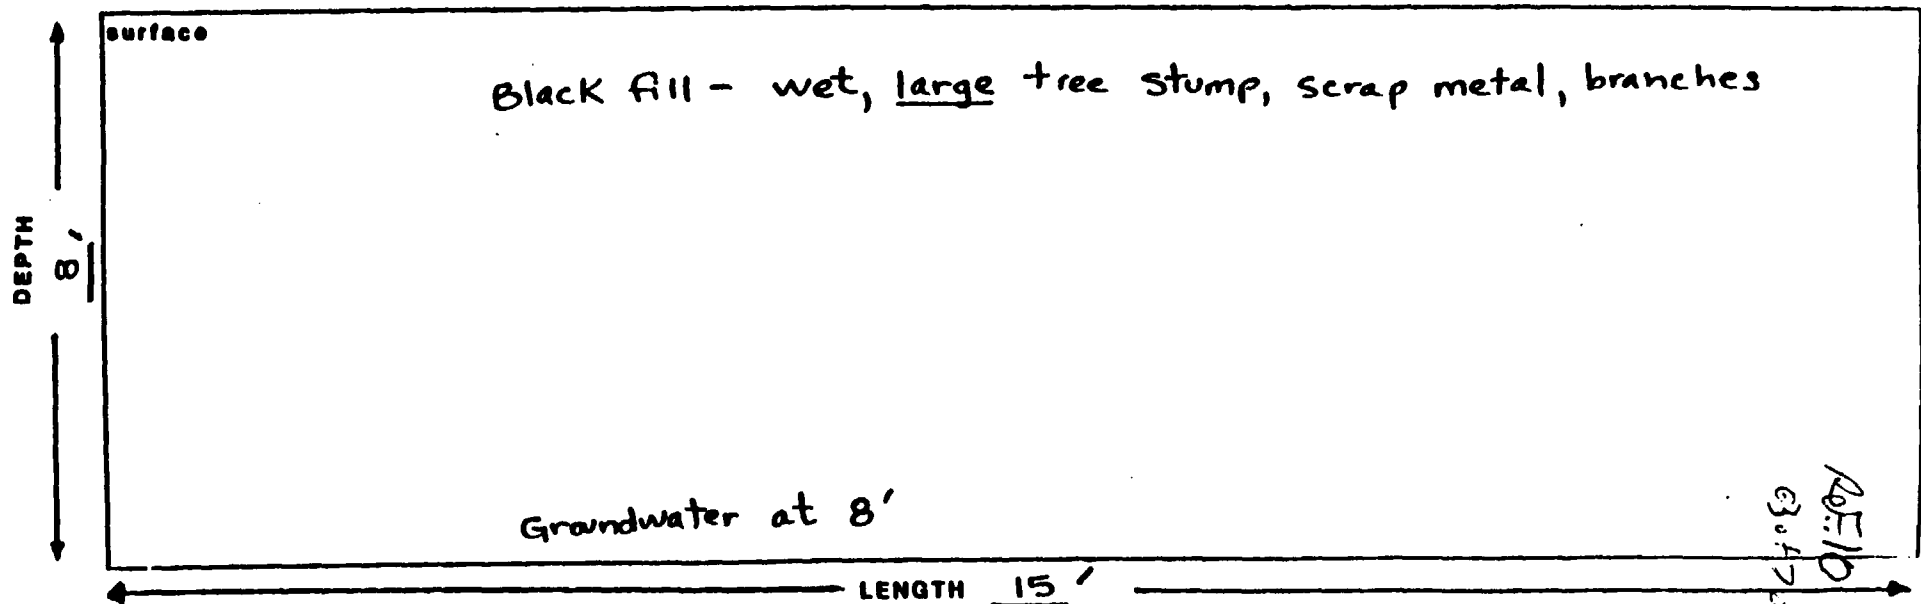 surface
Black fill - wet, large tree stump, scrap metal, branches
DEPTH 8'
Groundwater at 8'
LENGTH 15'